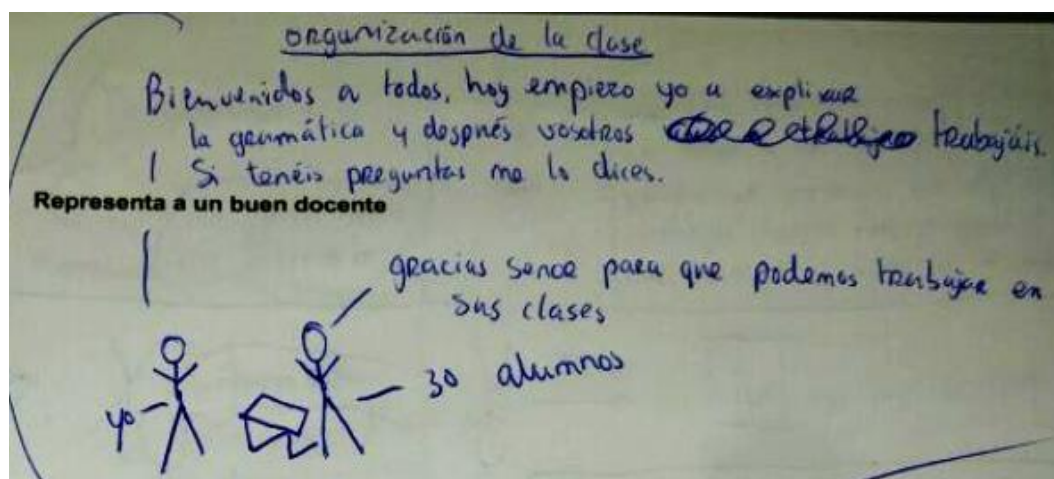 organización de la clase
Bienvenidos a todos, hoy empiezo yo a explicar
la geumática y después vosotros trabajáis.
Si tenéis preguntas me lo dices.
Representa a un buen docente
gracias senoe para que podemos trabajar en
sus clases
30 alumnos
yo